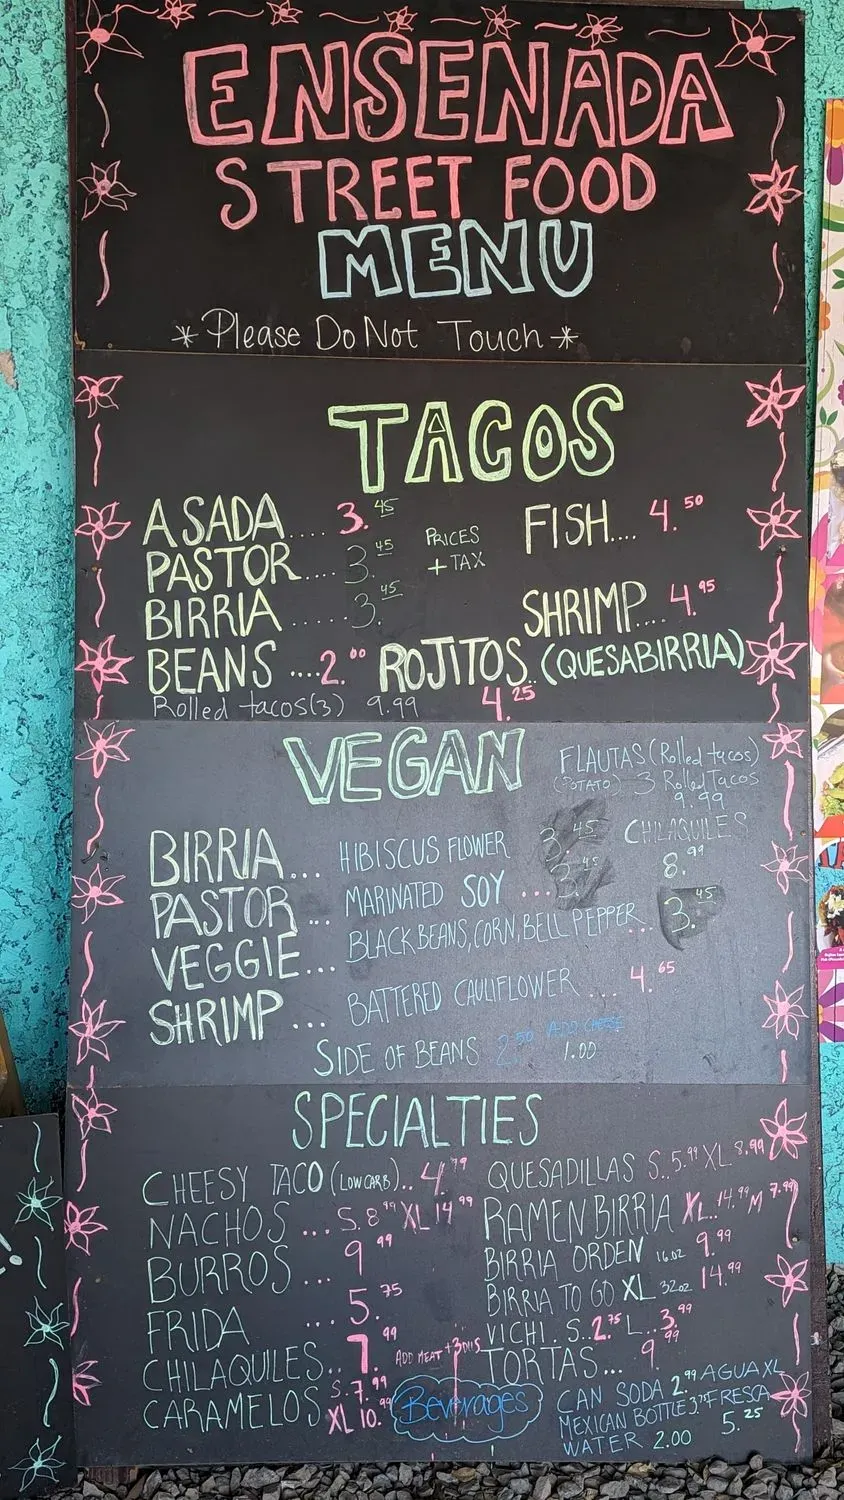 ENSENADA
STREET FOOD
MENU
* Please Do Not Touch *
TACOS
ASADA.... 3.45
PASTOR..... 3.45
BIRRIA...... 3.45
BEANS ....2.00
Rolled tacos(3) 9.99
PRICES
+ TAX
FISH.... 4.50
SHRIMP.... 4.95
ROJITOS..(QUESABIRRIA)
4.25
VEGAN
FLAUTAS (Rolled tacos)
(POTATO) 3 Rolled Tacos
9.99
CHILAQUILES
8.99
BIRRIA... HIBISCUS FLOWER 3.45
PASTOR... MARINATED SOY ... 3.45
VEGGIE... BLACK BEANS, CORN, BELL PEPPER... 3.45
SHRIMP ... BATTERED CAULIFLOWER ... 4.65
SIDE OF BEANS 2.50 ADD CHEESE
1.00
SPECIALTIES
CHEESY TACO (LOW CARB).. 4.79
NACHOS ... S. 8.99 XL 14.99
BURROS ... 9.99
FRIDA ... 5.75
CHILAQUILES.. 7.99 ADD MEAT +3
CARAMELOS S. 7.99
XL 10.99
QUESADILLAS S..5.99 XL 8.99
RAMEN BIRRIA XL..14.99 M 7.99
BIRRIA ORDEN 16oz 9.99
BIRRIA TO GO XL 32oz 14.99
VICHI. S..2.75 L..3.99
TORTAS... 9.99
Beverages
CAN SODA 2.99
MEXICAN BOTTLE 3.75
WATER 2.00
AGUA XL
FRESCA
5.25